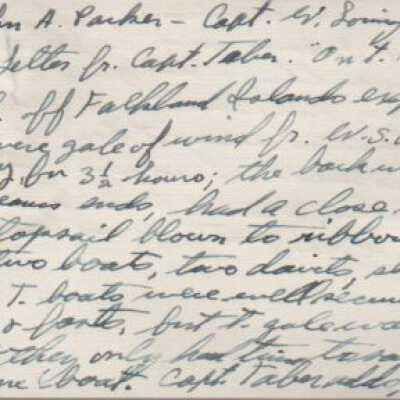 hn A. Parker – Capt. W.
Letter fr. Capt. Taber. "On T.
off Falkland Islands exp
vere gale of wind fr. W.S.
for 3½ hours; the bark w
eams ends, had a close
topsail blown to ribbo
two boats, two davits, s
T. boats were well secur
fasts, but T. gale wa
they only had time to
ne boat. Capt. Taber adds